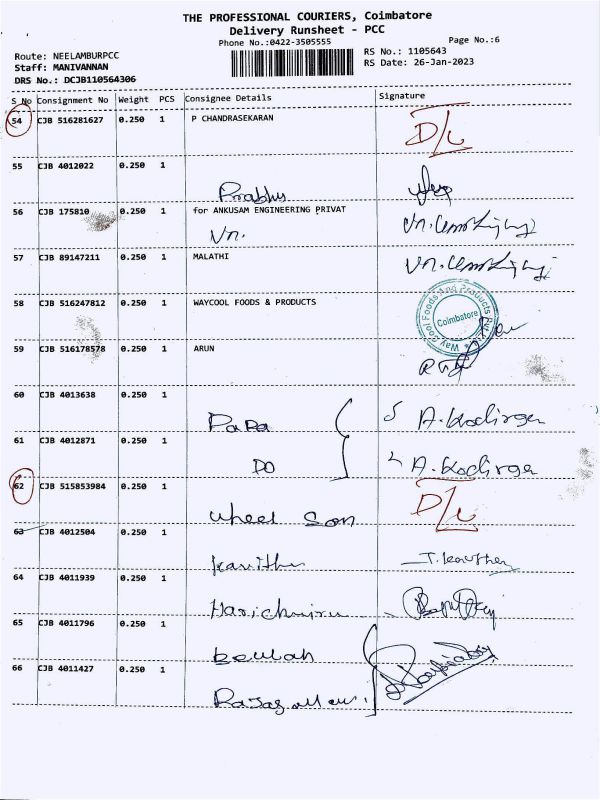 THE PROFESSIONAL COURIERS, Coimbatore
Delivery Runsheet - PCC
Phone No.:0422-3505555
Page No.:6
Route: NEELAMBURPCC
Staff: MANIVANNAN
DRS No.: DCJB110564306
RS No.: 1105643
RS Date: 26-Jan-2023
S No Consignment No Weight PCS Consignee Details Signature
54 CJB 516281627 0.250 1 P CHANDRASEKARAN D/L
55 CJB 4012022 0.250 1
Prabhu
56 CJB 175810 0.250 1 for ANKUSAM ENGINEERING PRIVAT
Vn.
57 CJB 89147211 0.250 1 MALATHI
58 CJB 516247812 0.250 1 WAYCOOL FOODS & PRODUCTS
Way Cool Foods And Products Pvt Ltd
Coimbatore
59 CJB 516178578 0.250 1 ARUN
60 CJB 4013638 0.250 1
Papa A. Kodirgen
61 CJB 4012871 0.250 1
DO A. Kodirgen
62 CJB 515853984 0.250 1 D/L
wheel Son
63 CJB 4012504 0.250 1
Kavitha
64 CJB 4011939 0.250 1
65 CJB 4011796 0.250 1
beulah
66 CJB 4011427 0.250 1